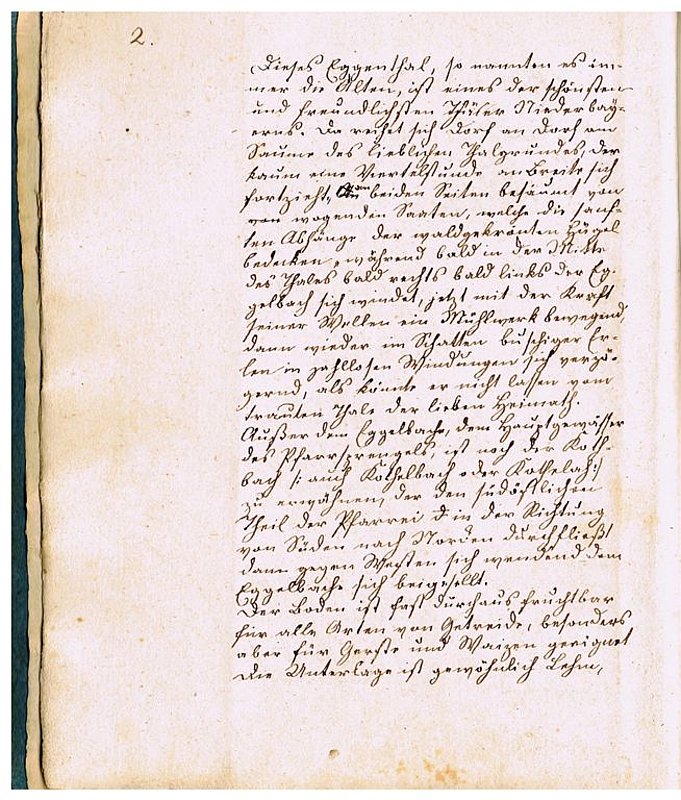 2.
Dieses Eggenthal, so nannten es im-
mer die Alten, ist eines der schönsten
und freundlichsten Thäler Niederbay-
erns. Da reihet sich Dorf an Dorf am
Saume des lieblichen Thalgrundes, der
kaum eine Viertelstunde an Breite sich
fortzieht, an beiden Seiten besäumt von
von wogenden Saaten, welche die sanf-
ten Abhänge der waldgekrönten Hügel
bedecken, während bald in der Mitte
des Thales bald rechts bald links der Eg-
gelbach sich windet, jetzt mit der Kraft
seiner Wellen ein Mühlwerk bewegend,
dann wieder im Schatten buschiger Er-
len in zahllosen Windungen sich verzö-
gernd, als könnte er nicht lassen vom
trauten Thale der lieben Heimath.
Außer dem Eggelbache, dem Hauptgewässer
des Pfarrsprengels, ist noch der Koth-
bach /: auch Kothelbach oder Kothelach :/
zu erwähnen, der den südöstlichen
Theil der Pfarrei in der Richtung
von Süden nach Norden durchfließt
dann gegen Westen sich wendend dem
Eggelbache sich beigesellt.
Der Boden ist fast durchaus fruchtbar
für alle Arten von Getreide, besonders
aber für Gerste und Waizen geeignet
die Unterlage ist gewöhnlich Lehm,